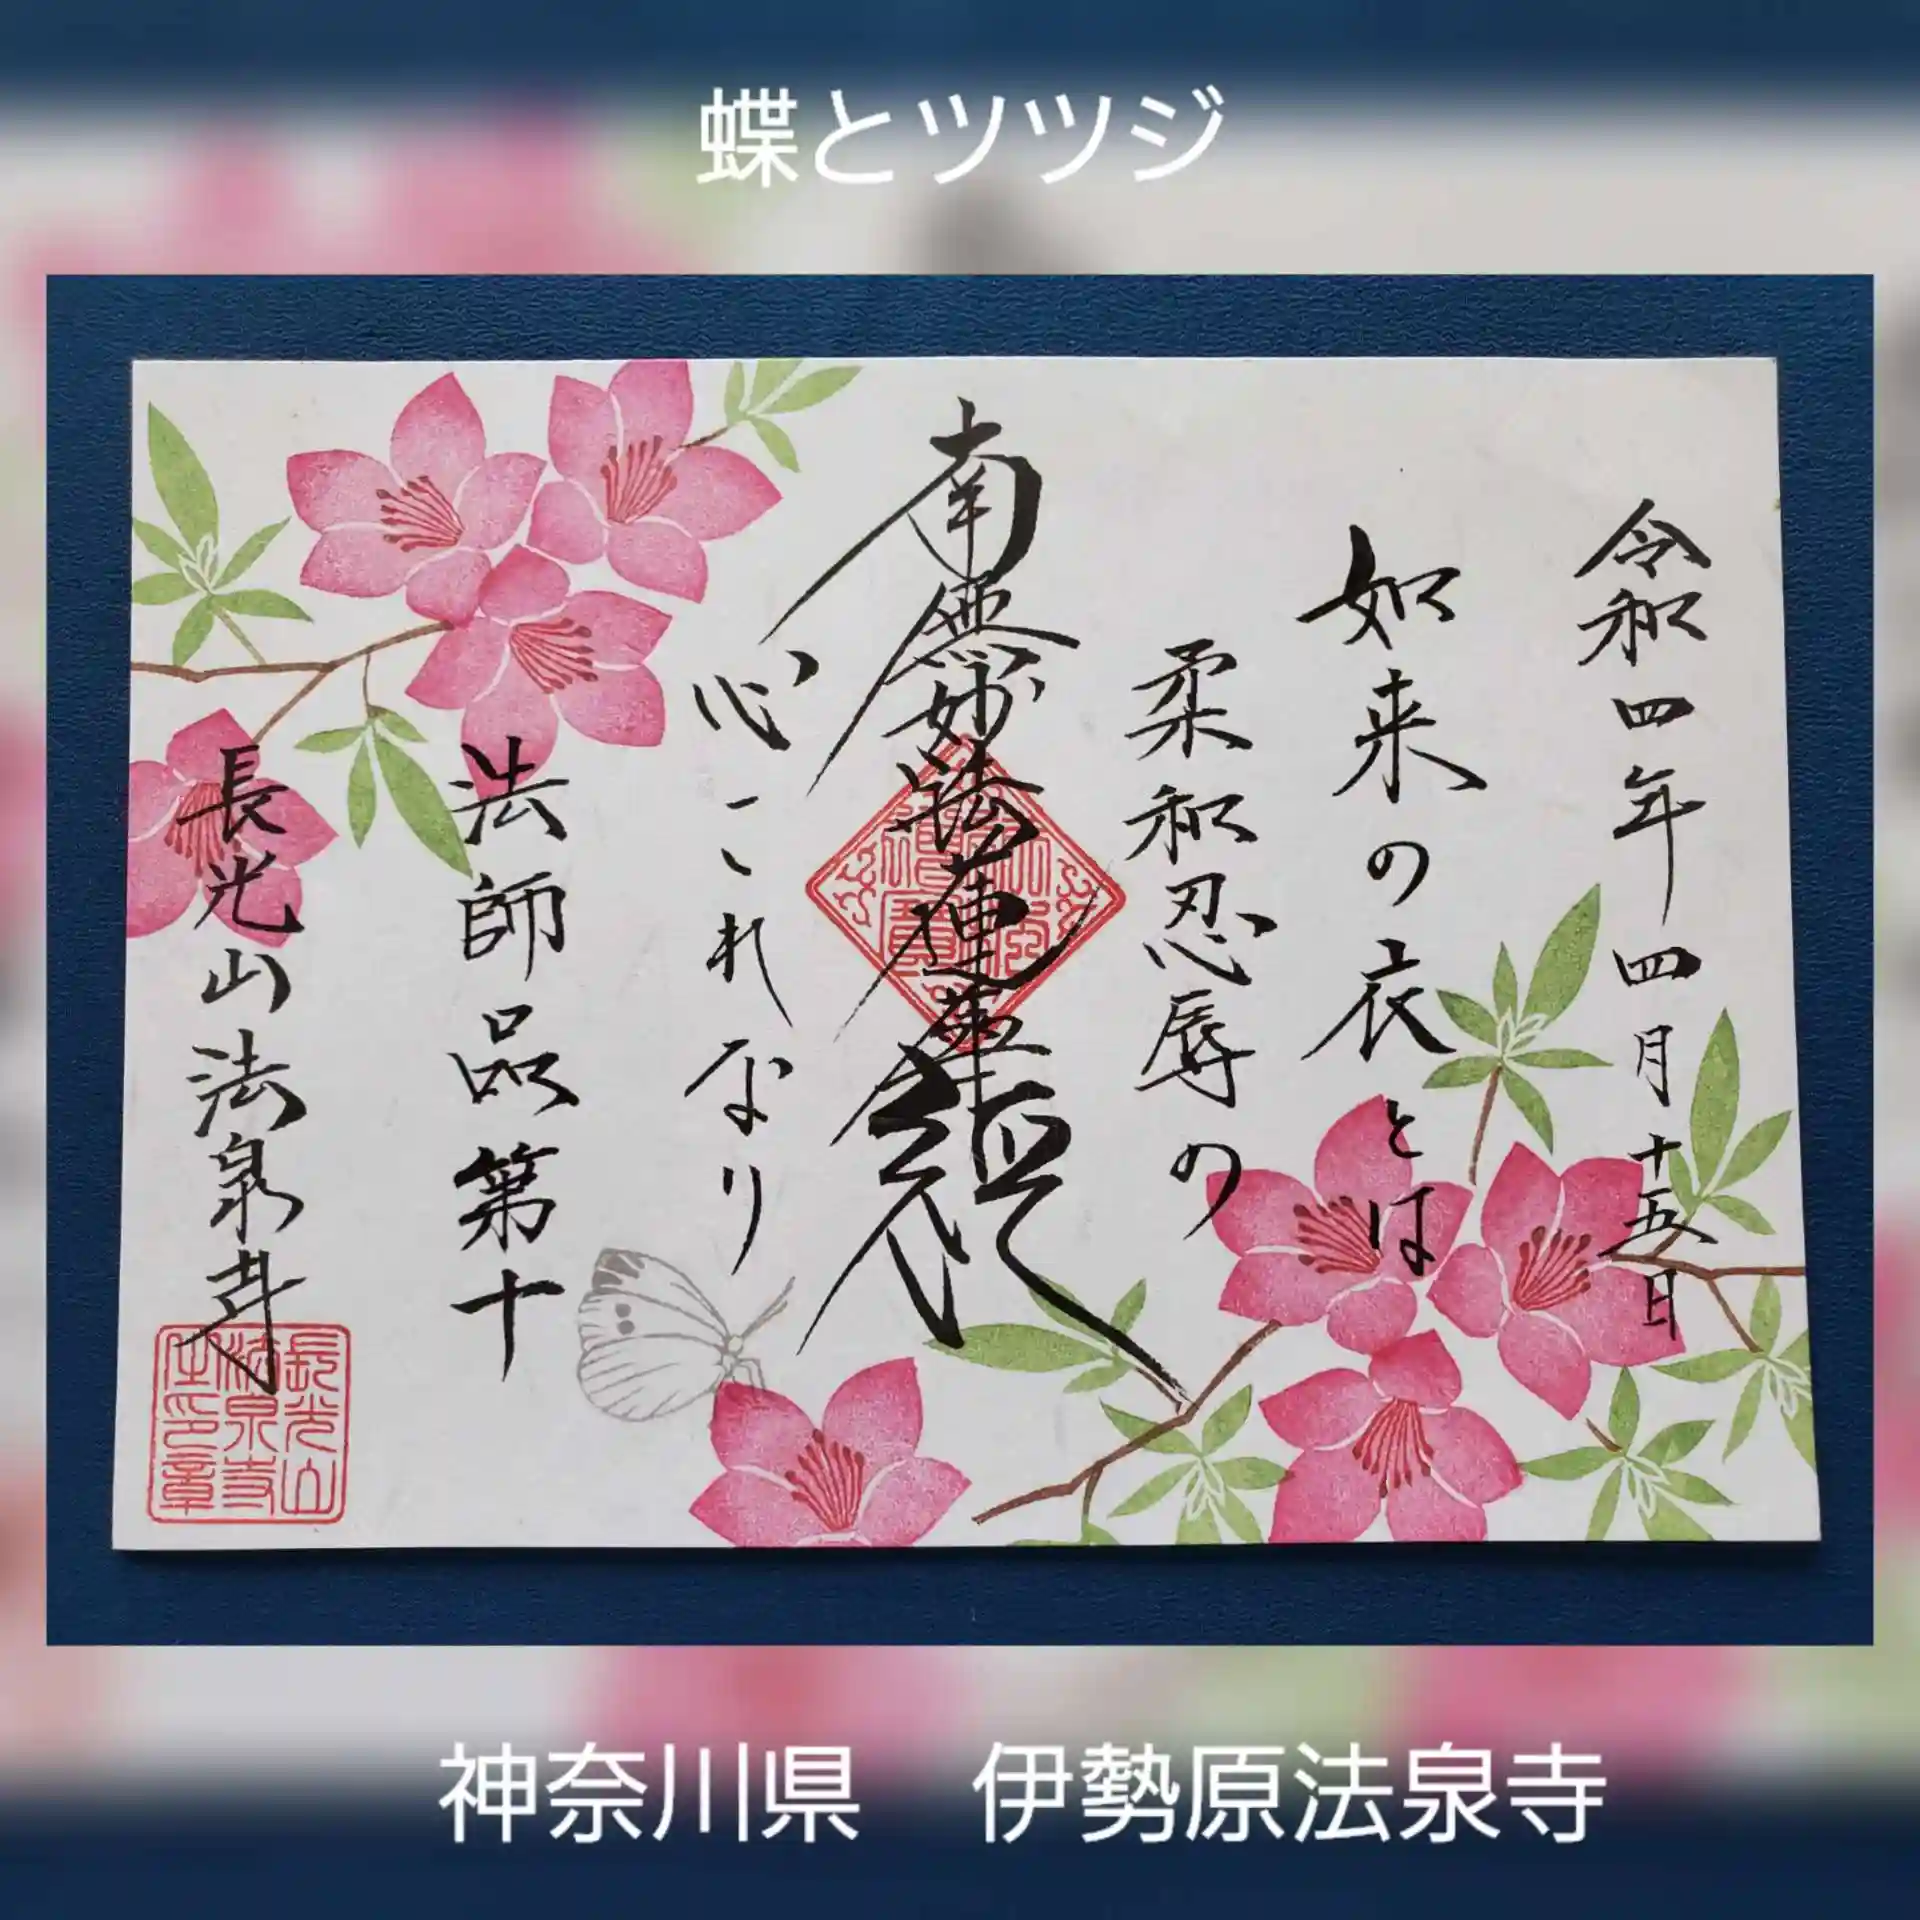 蝶とツツジ
令和四年四月十五日
如来の衣とは
柔和忍辱の
南無妙法蓮華経
心これなり
法師品第十
長光山法泉寺
長光山
法泉寺
印章
神奈川県　伊勢原法泉寺